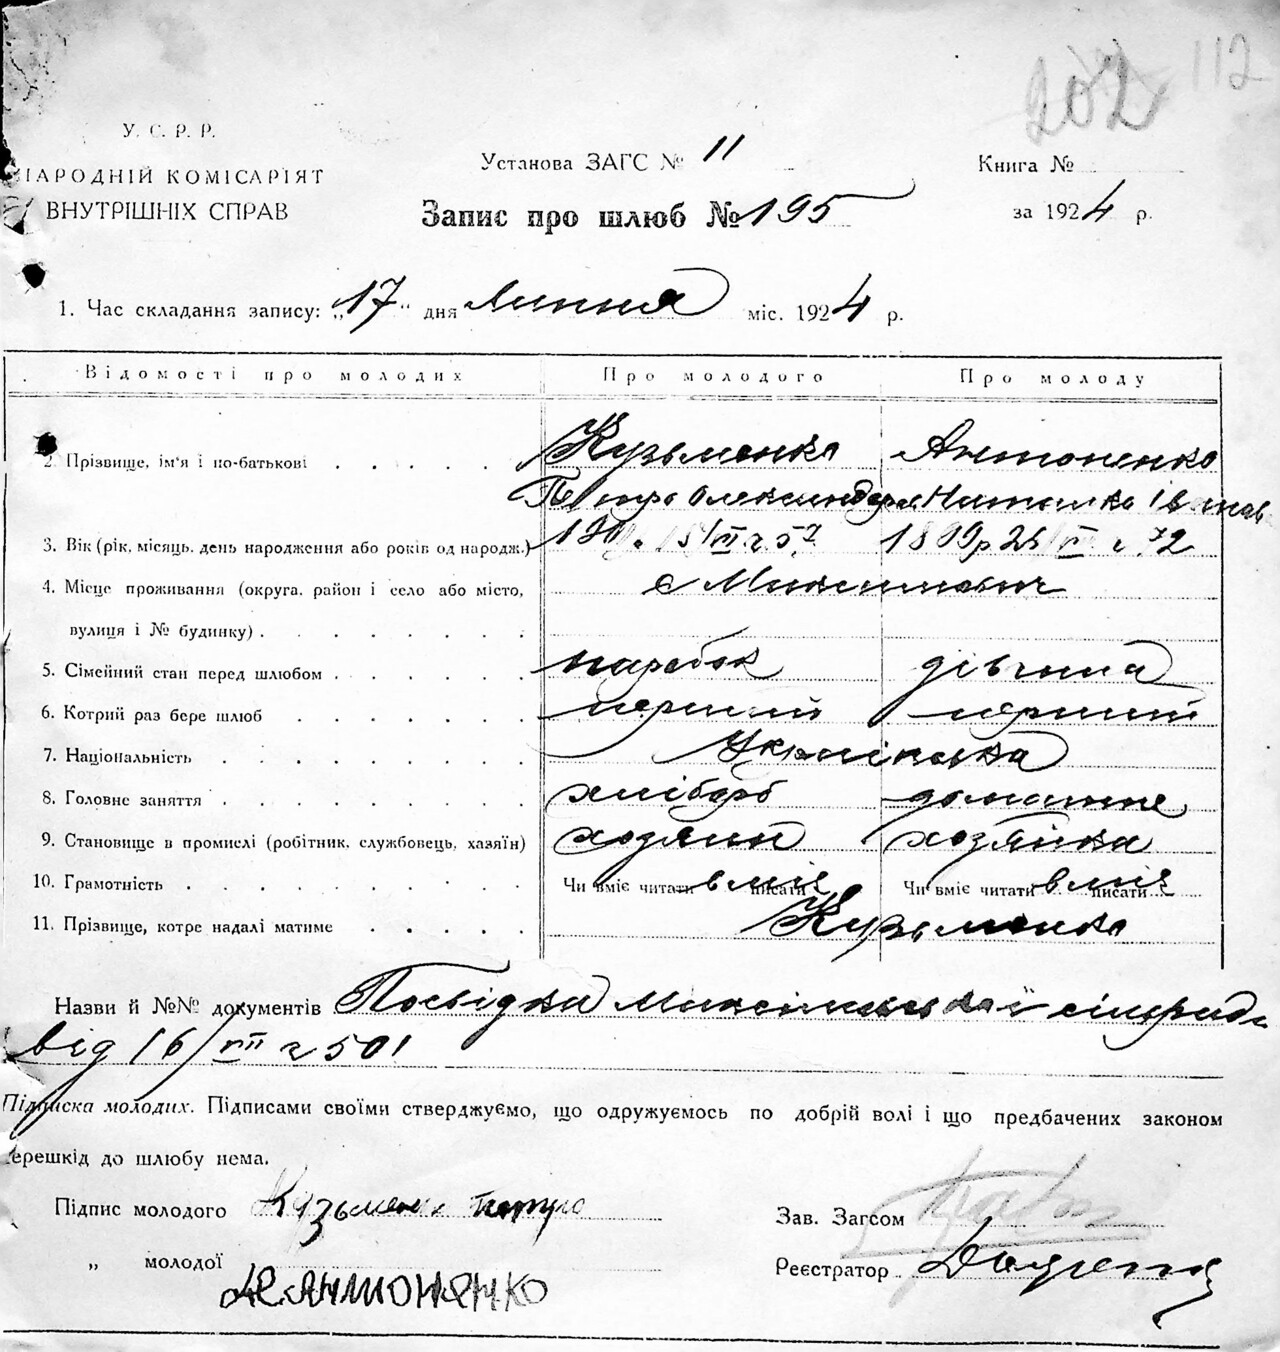 202 112
У. С. Р. Р.
НАРОДНІЙ КОМІСАРІЯТ
ВНУТРІШНІХ СПРАВ
Установа ЗАГС № 11
Книга №
Запис про шлюб № 195
за 1924 р.
1. Час складання запису: „17" дня Липня міс. 1924 р.
Відомості про молодих Про молодого Про молоду
2. Прізвище, ім'я і по-батькові Кузьменко Антоненко
Петро Наталка
3. Вік (рік, місяць, день народження або років од народж.) 1899р
4. Місце проживання (округа, район і село або місто,
вулиця і № будинку)
5. Сімейний стан перед шлюбом парубок дівчина
6. Котрий раз бере шлюб перший перший
7. Національність Українська
8. Головне заняття хлібороб домашнє
9. Становище в промислі (робітник, службовець, хазяїн) хозяин хозяйка
10. Грамотність Чи вміє читати вміє писати Чи вміє читати вміє писати
11. Прізвище, котре надалі матиме Кузьменко
Назви й №№ документів Посвідка сільради
від 16/VII 501
Підписка молодих. Підписами своїми стверджуємо, що одружуємось по добрій волі і що предбачених законом
перешкід до шлюбу нема.
Підпис молодого Кузьменко Петро
Зав. Загсом
„ молодої Антоненко
Реєстратор